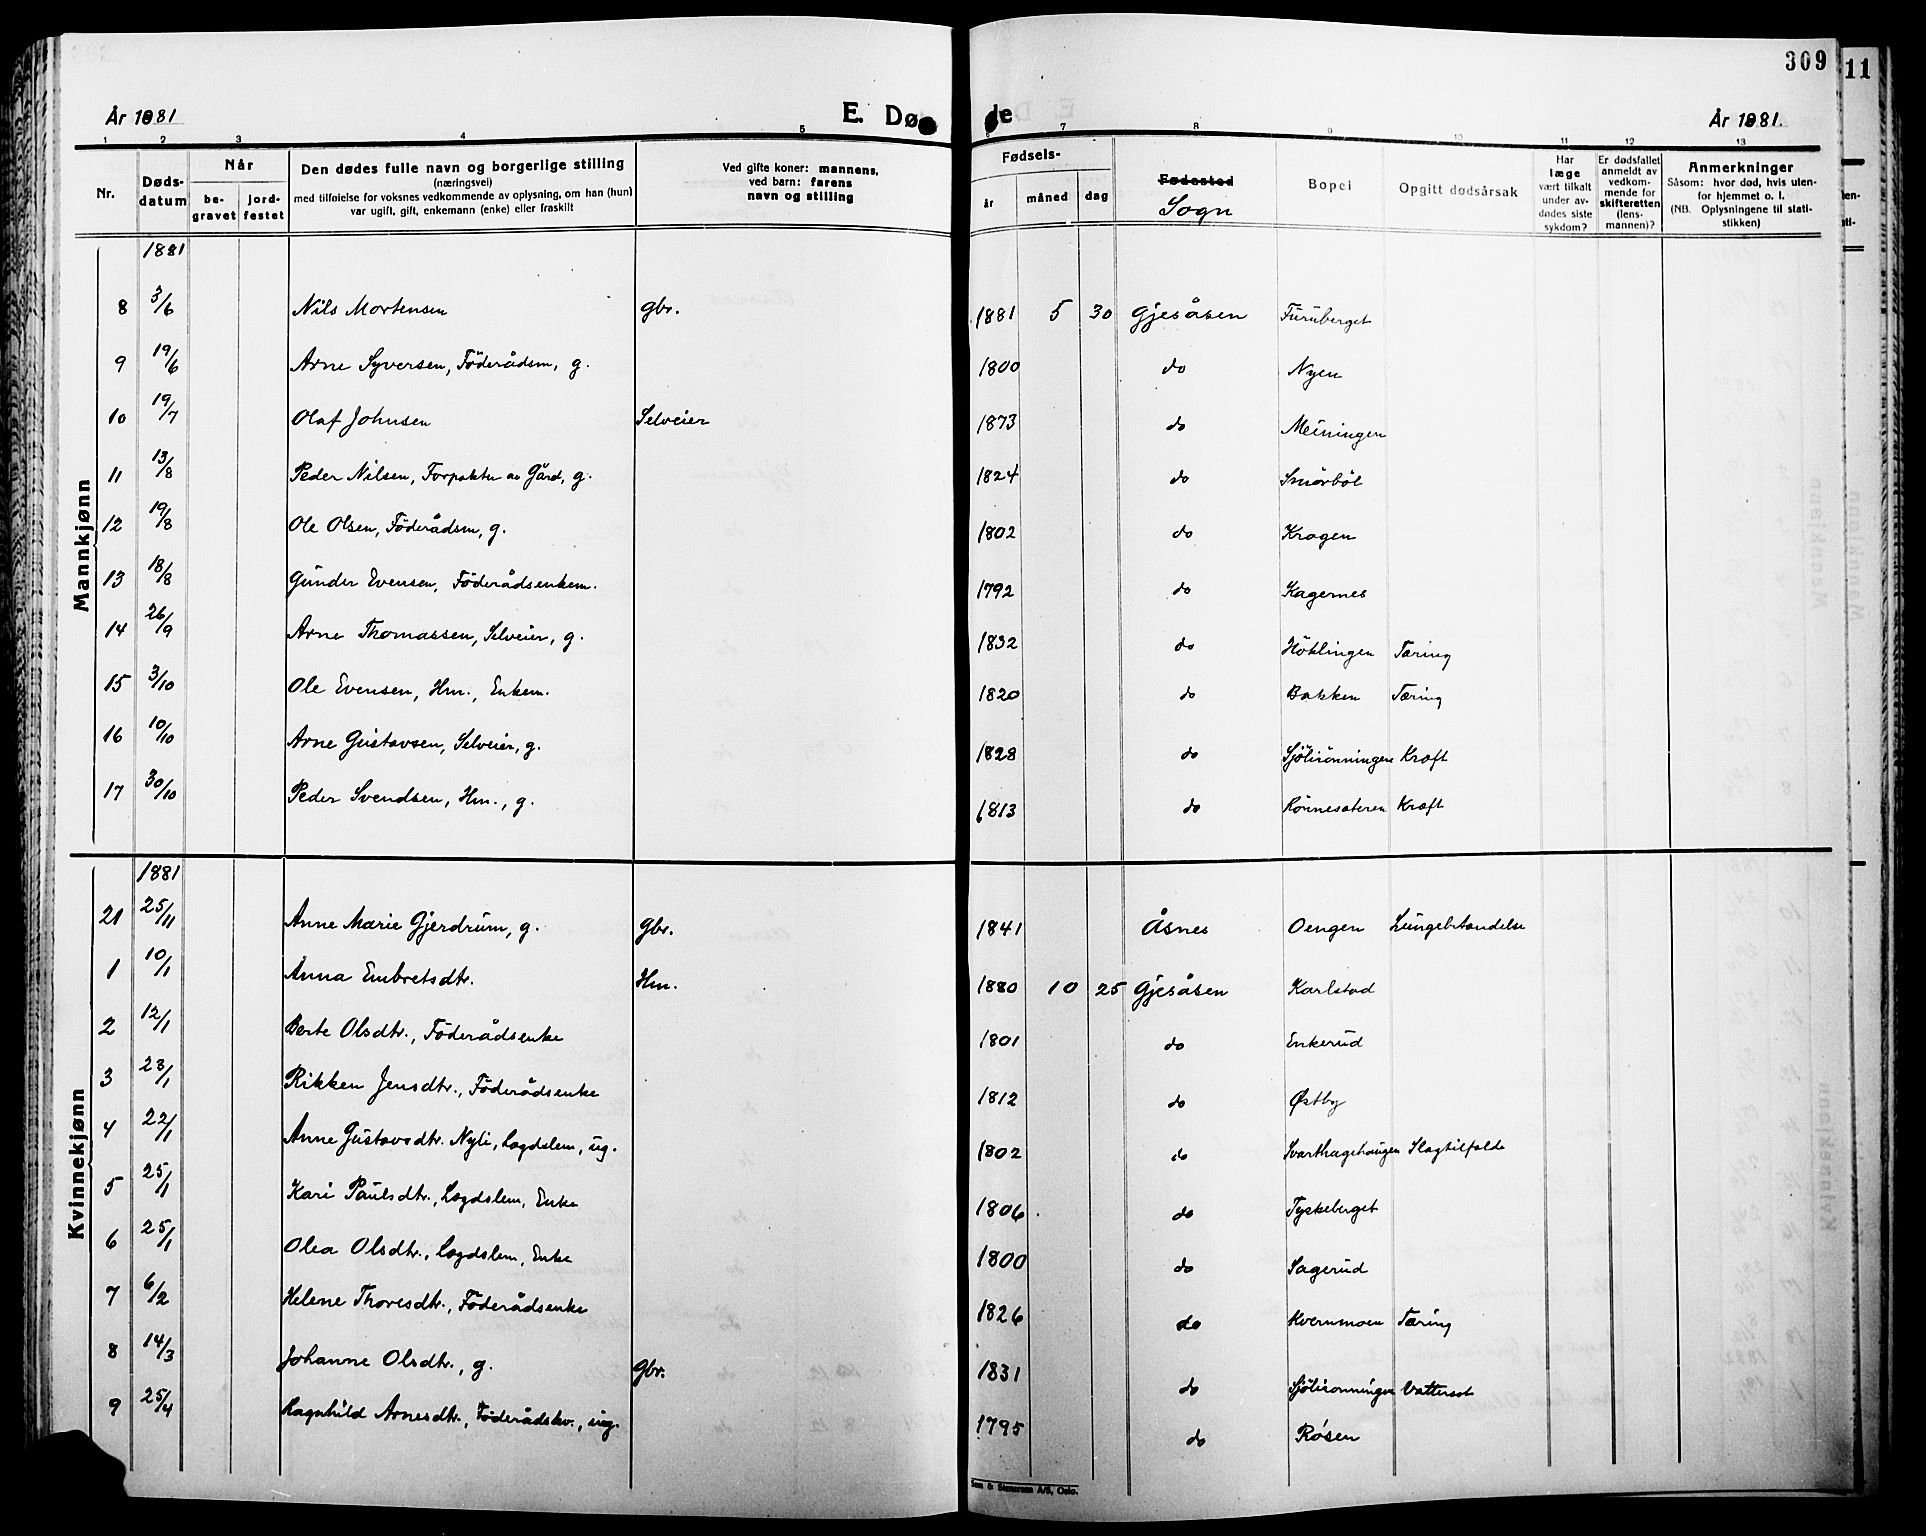 309
11
År 1881
E. Døde
År 1881.
1 2 3 4 5 6 7 8 9 10 11 12 13
Nr.
Døds-datum
Når
be-gravet
jord-festet
Den dødes fulle navn og borgerlige stilling
(næringsvei)
med tilføielse for voksnes vedkommende av oplysning, om han (hun)
var ugift, gift, enkemann (enke) eller fraskilt
Ved gifte koner: mannens,
ved barn: farens
navn og stilling
Fødsels-
år måned dag
Fødested
Sogn
Bopel
Opgitt dødsårsak
Har læge vært tilkalt under av-dødes siste sykdom?
Er dødsfallet anmeldt av vedkom-mende for skifteretten (lens-mannen)?
Anmerkninger
Såsom: hvor død, hvis uten-
for hjemmet o. l.
(NB. Oplysningene til stati-
stikken)
Mannkjønn
1881
8 3/6 Nils Mortensen gbr. 1881 5 30 Gjesåsen Furuberget
9 19/6 Arne Syversen, Föderådsm, g. 1800 do Nyen
10 19/7 Olaf Johnsen Selveier 1873 do Meiningen
11 13/8 Peder Nilsen, Forpakter av Gård, g. 1824 do Smörböl
12 19/8 Ole Olsen, Föderådsm, g. 1802 do Kragen
13 18/8 Gunder Evensen, Föderådsenkem. 1792 do Kagernes
14 26/9 Arne Thomassen, Selveier, g. 1832 do Höklingen Tæring
15 3/10 Ole Evensen, Hm., Enkem. 1820 do Bakken Tæring
16 10/10 Arne Gustavsen, Selveier, g. 1828 do Sjölirönningen Kræft
17 30/10 Peder Svendsen, Hm., g. 1813 do Rönnesæteren Kræft
Kvinnekjønn
1881
21 25/11 Anne Marie Gjerdrum, g. Gbr. 1841 Åsnes Oengen Lungebetændelse
1 10/1 Anna Embretsdtr. Hm. 1880 10 25 Gjesåsen Karlstad
2 12/1 Berte Olsdtr., Föderådsenke 1801 do Enkerud
3 23/1 Rikken Jensdtr., Föderådsenke 1812 do Østby
4 22/1 Anne Gustavsdtr. Nyli, Lægdslem, ug. 1802 do Svarthagehaugen Slagtilfælde
5 25/1 Kari Paulsdtr., Lægdslem, Enke 1806 do Tyskeberget
6 25/1 Olea Olsdtr., Lægdslem, Enke 1800 do Sagerud
7 6/2 Helene Thoresdtr., Föderådsenke 1826 do Kvernmoen Tæring
8 14/3 Johanne Olsdtr., g. Gbr. 1831 do Sjölirönningen Vattersot
9 25/4 Ragnhild Arnesdtr., Föderådskv., ug. 1795 do Røsen
& Stenersen A/S, Oslo.